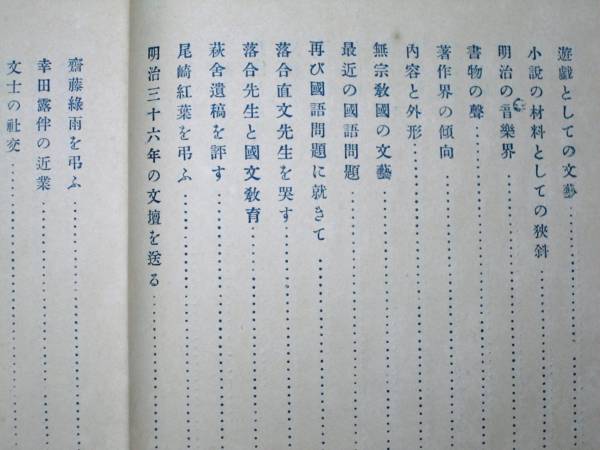 遊戲としての文藝
小說の材料としての狹斜
明治の音樂界
書物の聲
著作界の傾向
內容と外形
無宗敎國の文藝
最近の國語問題
再び國語問題に就きて
落合直文先生を哭す
落合先生と國文敎育
萩舍遺稿を評す
尾崎紅葉を弔ふ
明治三十六年の文壇を送る
齋藤綠雨を弔ふ
幸田露伴の近業
文士の社交